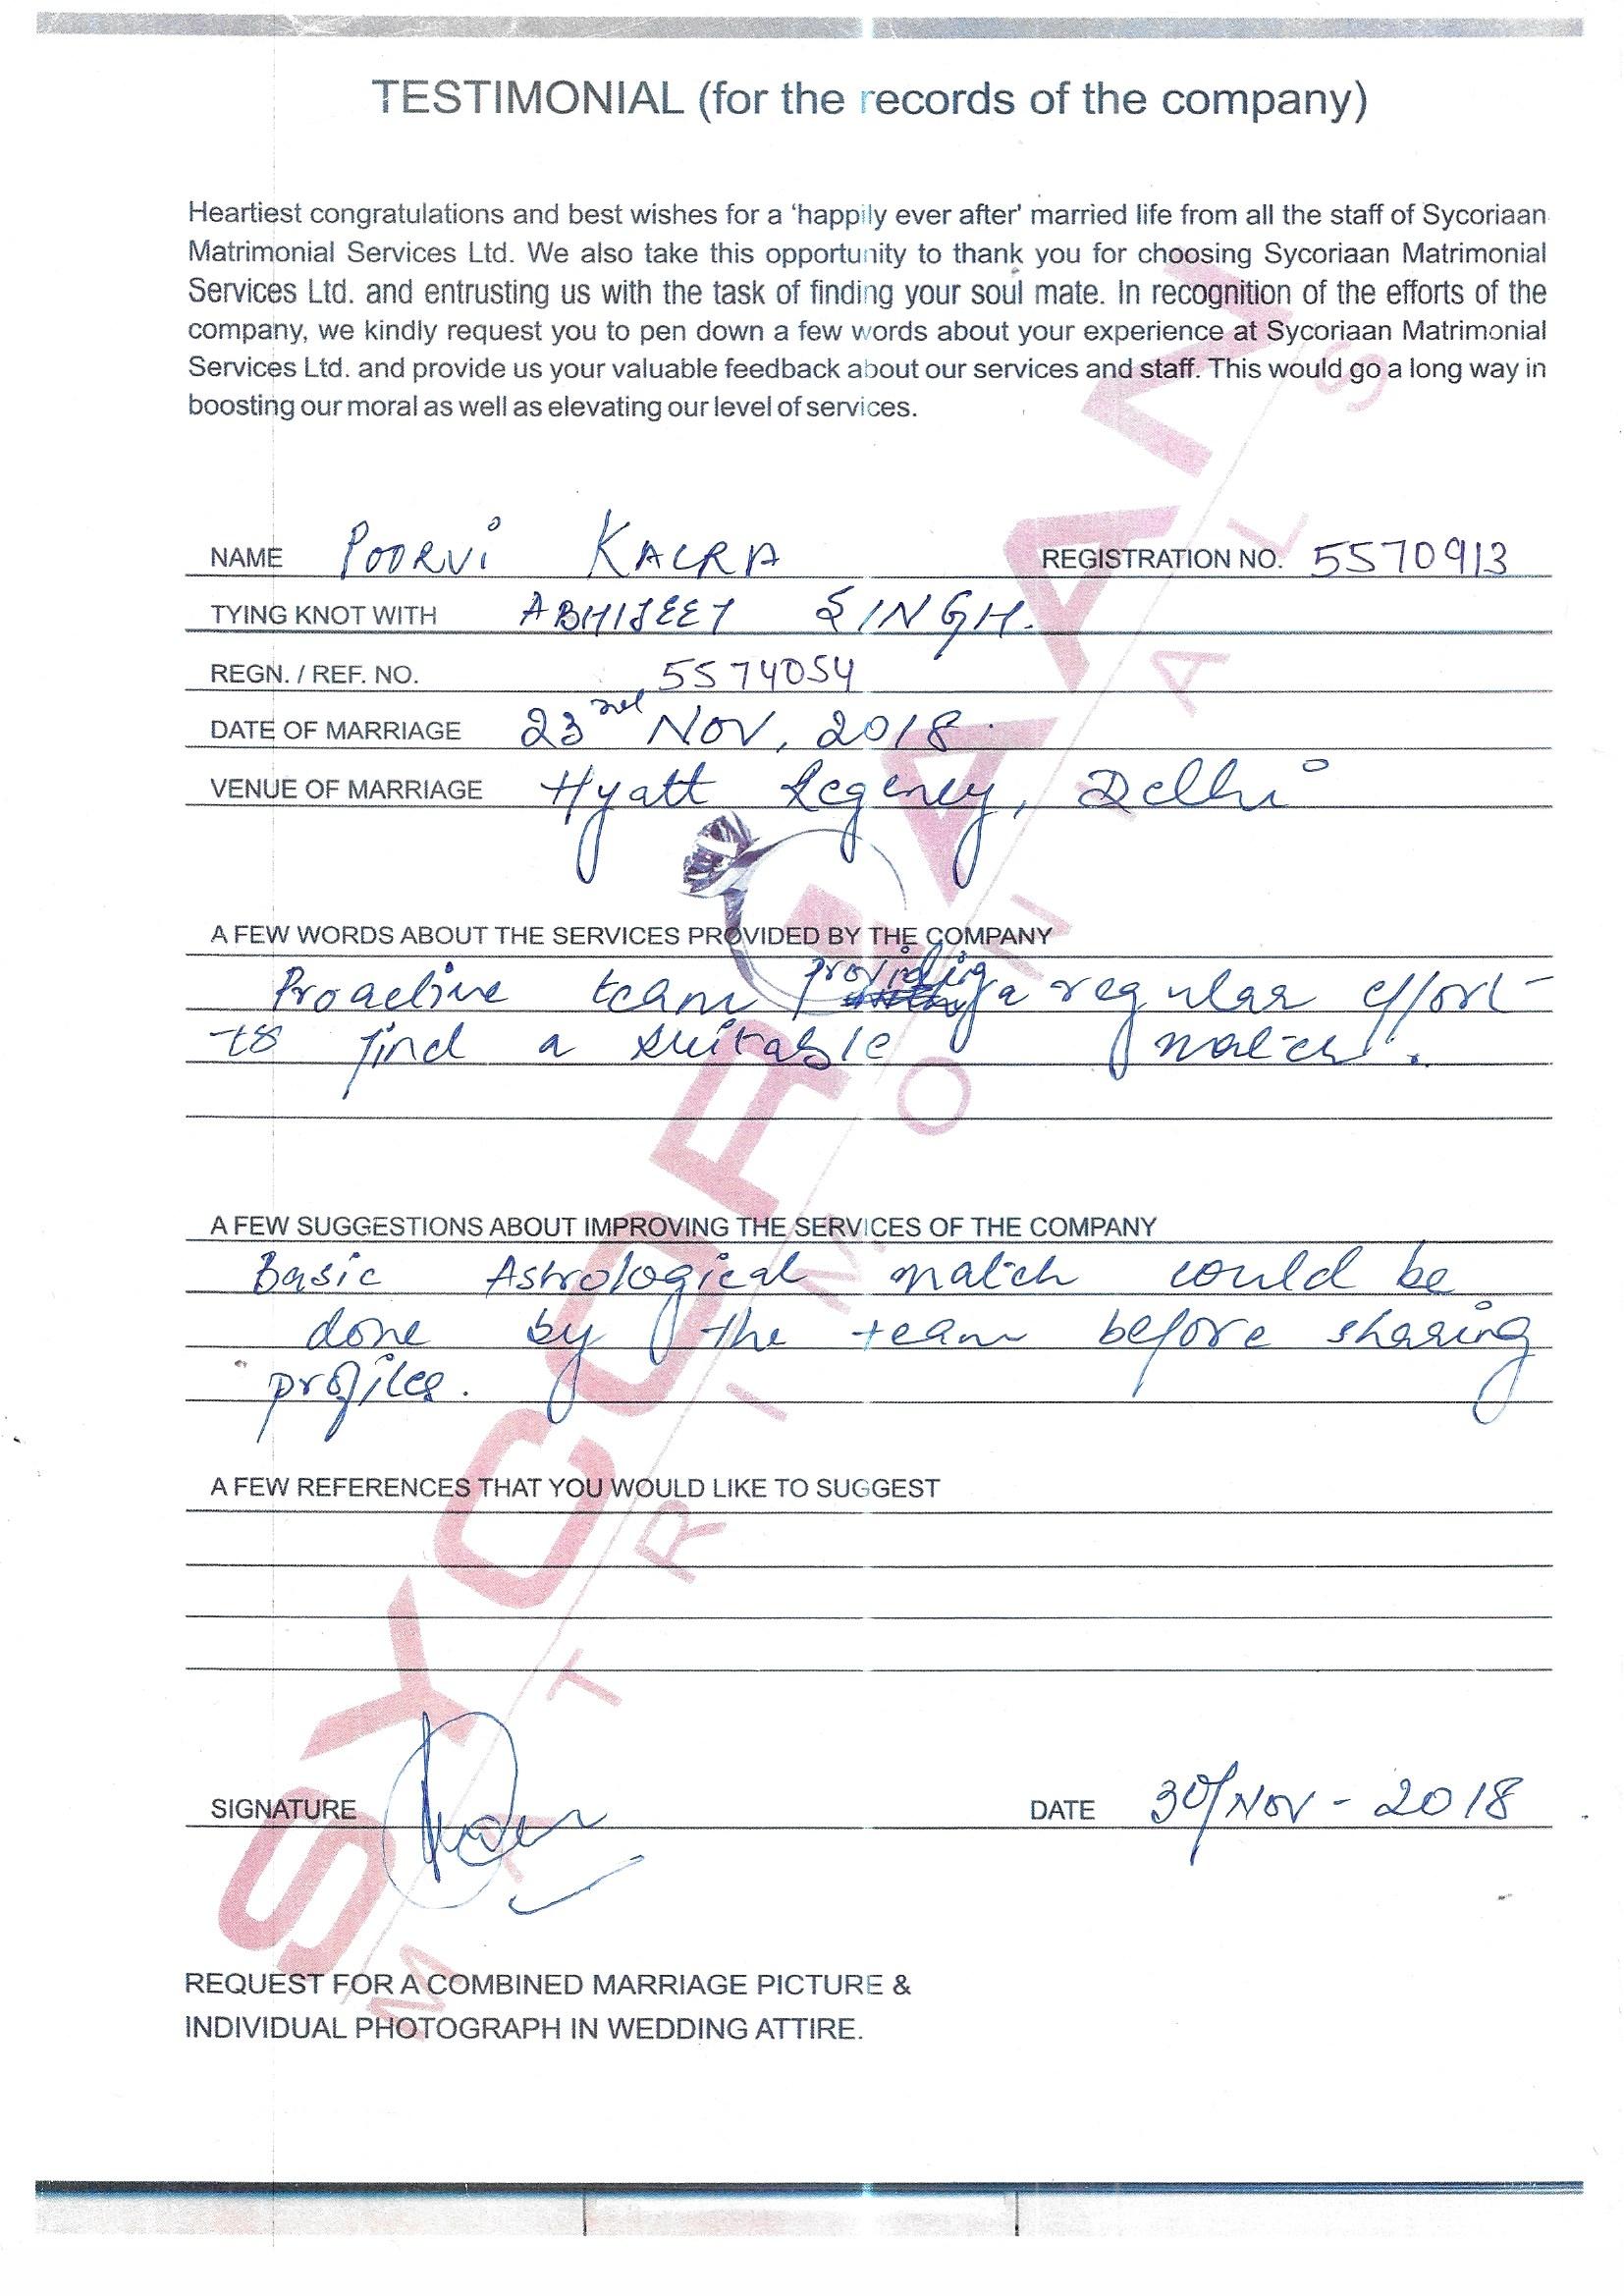 TESTIMONIAL (for the records of the company)
Heartiest congratulations and best wishes for a 'happily ever after' married life from all the staff of Sycoriaan
Matrimonial Services Ltd. We also take this opportunity to thank you for choosing Sycoriaan Matrimonial
Services Ltd. and entrusting us with the task of finding your soul mate. In recognition of the efforts of the
company, we kindly request you to pen down a few words about your experience at Sycoriaan Matrimonial
Services Ltd. and provide us your valuable feedback about our services and staff. This would go a long way in
boosting our moral as well as elevating our level of services.
NAME POORVI KALRA REGISTRATION NO. 5570913
TYING KNOT WITH ABHIJEET SINGH.
REGN. / REF. NO. 5574054
DATE OF MARRIAGE 23rd NOV, 2018
VENUE OF MARRIAGE Hyatt Regency, Delhi
A FEW WORDS ABOUT THE SERVICES PROVIDED BY THE COMPANY
Proactive team providing a regular effort
to find a suitable match.
A FEW SUGGESTIONS ABOUT IMPROVING THE SERVICES OF THE COMPANY
Basic Astrological match could be
done by the team before sharing
profiles.
A FEW REFERENCES THAT YOU WOULD LIKE TO SUGGEST
SIGNATURE DATE 30/Nov - 2018
REQUEST FOR A COMBINED MARRIAGE PICTURE &
INDIVIDUAL PHOTOGRAPH IN WEDDING ATTIRE.
SYCORIAAN
MATRIMONIALS